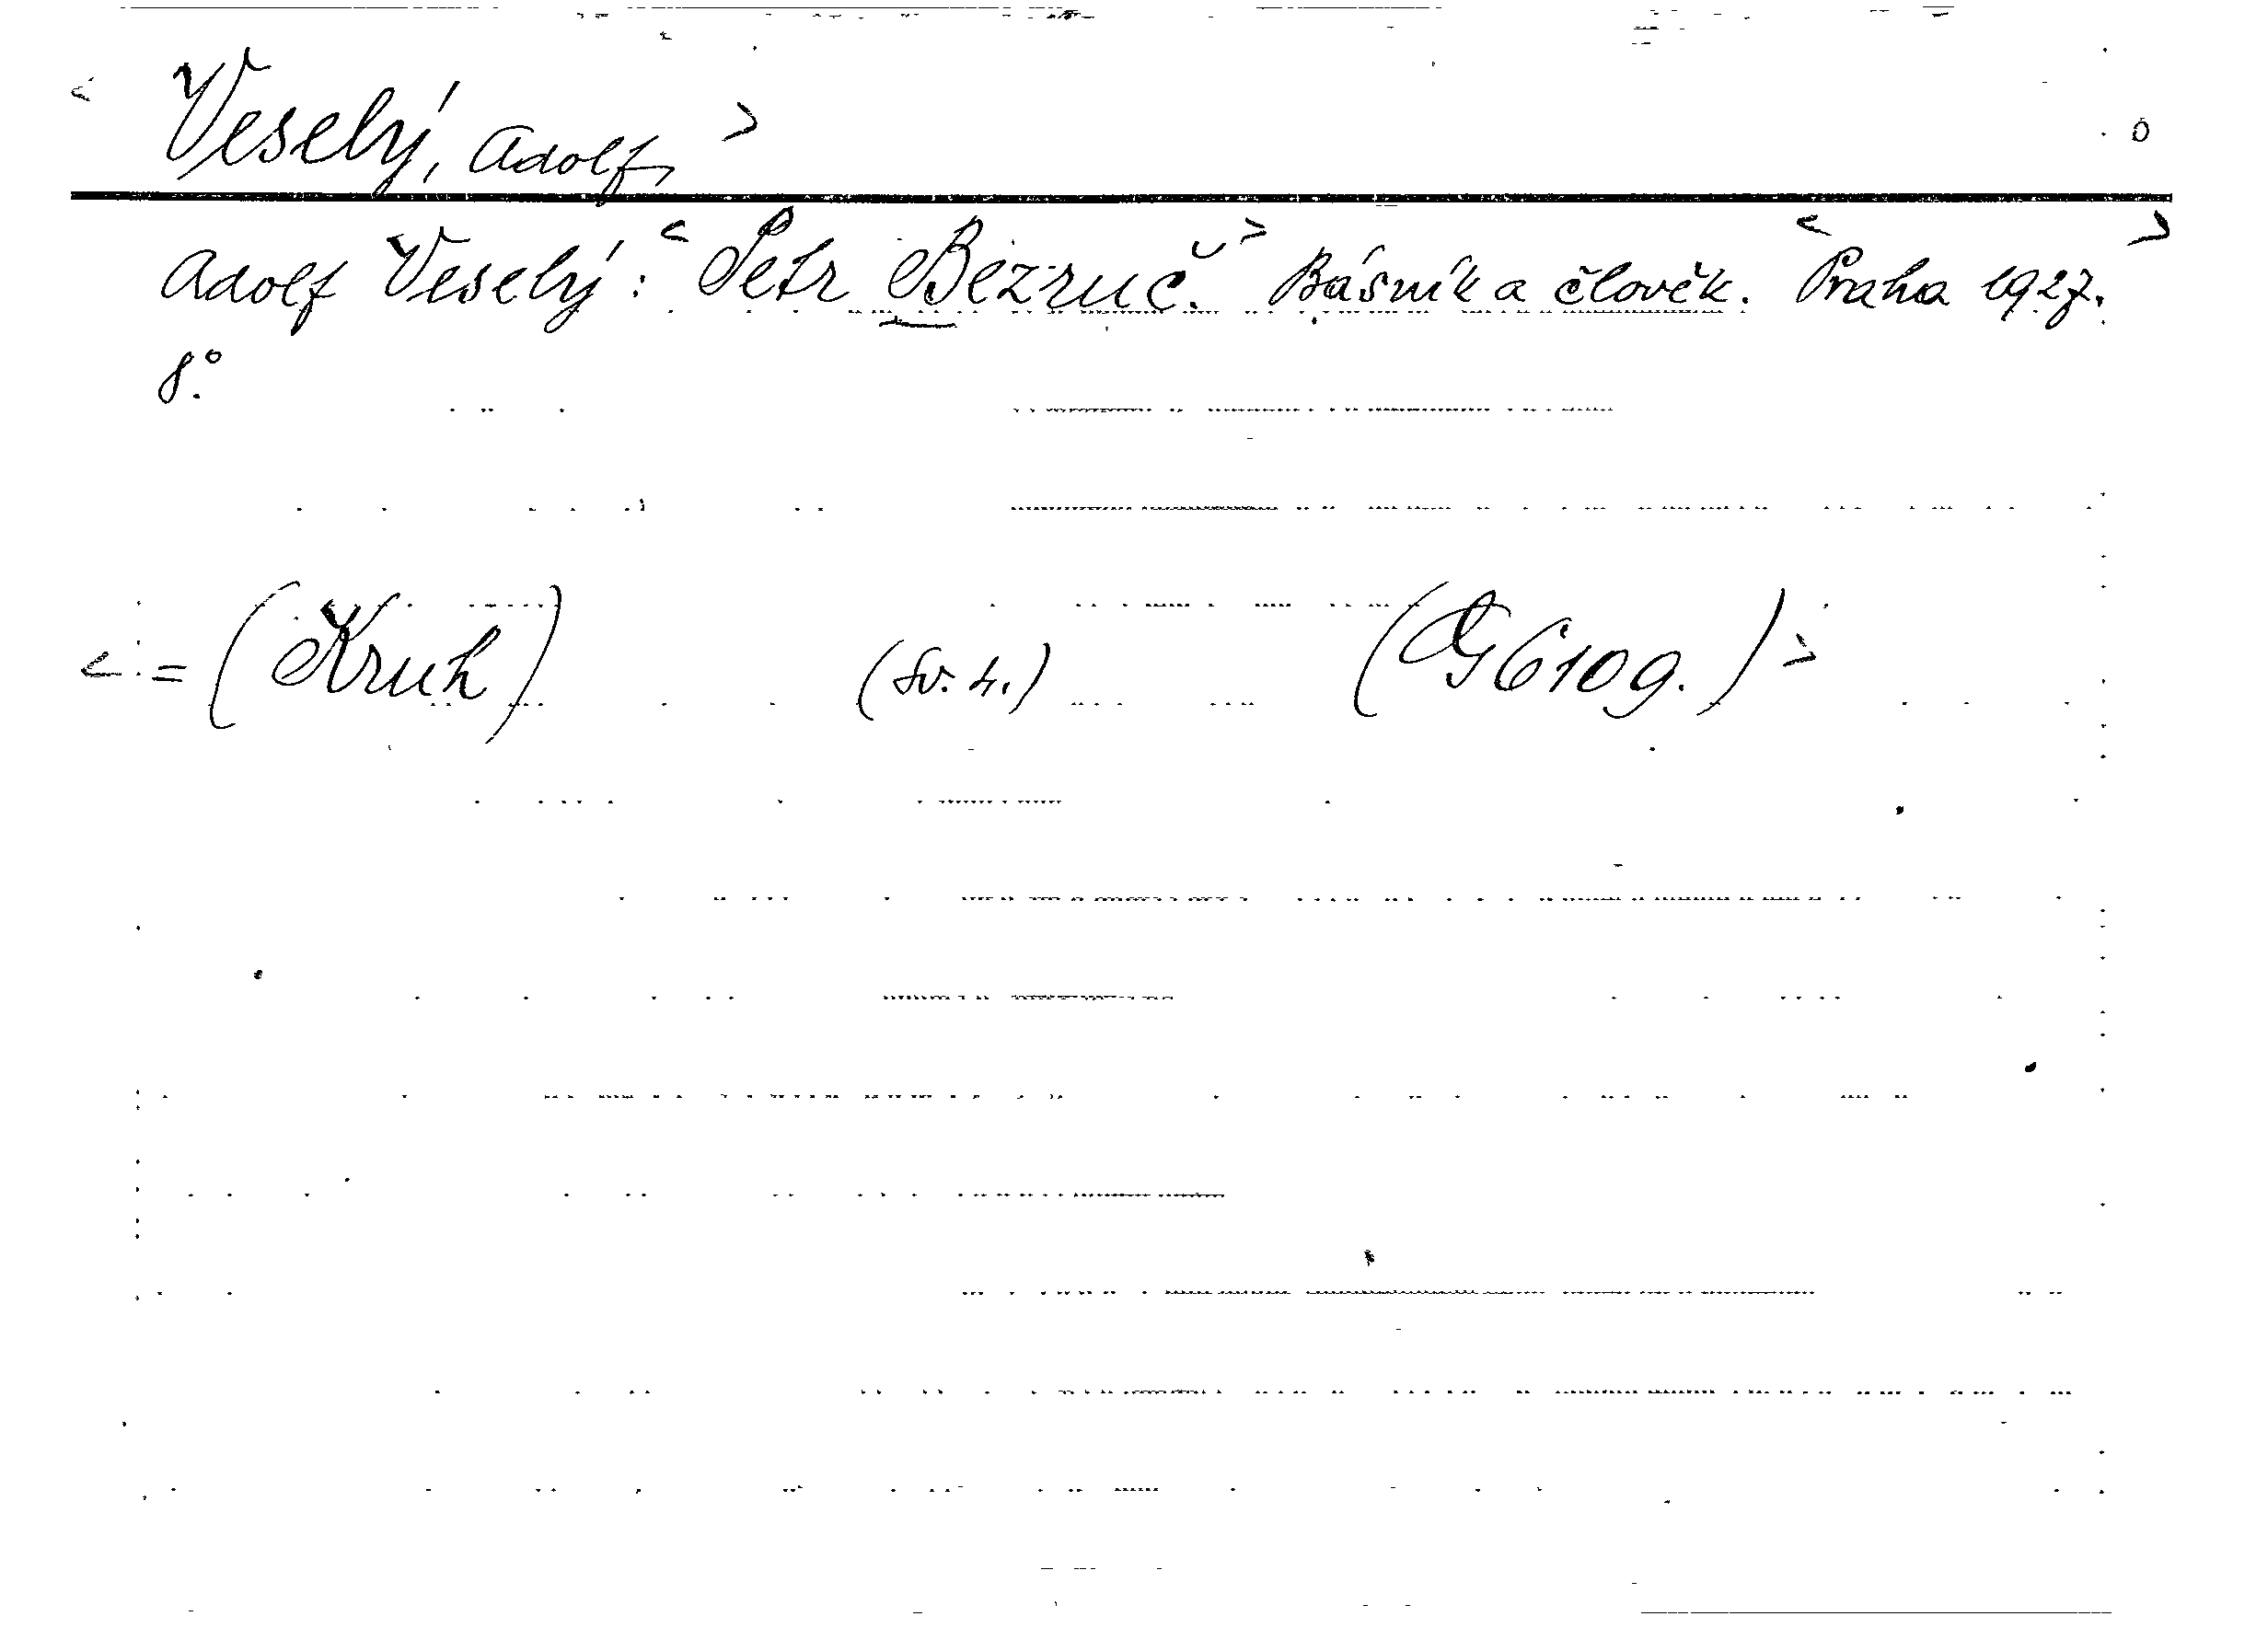 < Veselý, Adolf, > 0
Adolf Veselý: < Petr Bezruč. > Básník a člověk. < Praha 1927. >
8°.
< = (Kruh) (Sv. 4.) (G 6109.) >